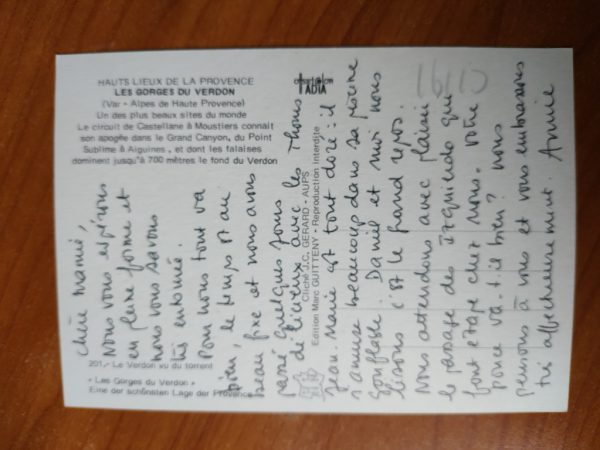 HAUTS LIEUX DE LA PROVENCE
LES GORGES DU VERDON
(Var - Alpes de Haute Provence)
Un des plus beaux sites du monde
Le circuit de Castellane à Moustiers connaît
son apogée dans le Grand Canyon, du Point
Sublime à Aiguines, et dont les falaises
dominent jusqu'à 700 mètres le fond du Verdon
201.- Le Verdon vu du torrent
« Les Gorges du Verdon »
Eine der schönsten Lage der Provence
Cliché J.C. GERARD - AUPS
Edition Marc GUITTENY - Reproduction interdite
chère mamie,
Nous vous espérons
en pleine forme et
nous vous savons
très entourée.
Pour nous tout va
bien, le temps est au
beau fixe et nous avons
passé quelques jours
délicieux avec les Thomas
Jean-Marie est tout doré : il
s'amuse beaucoup dans sa piscine
gonflable. Daniel et moi nous
lisons c'est le grand repos.
Nous attendons avec plaisir
le passage des Izquierdo qui
font étape chez nous. Votre
pouce va-t-il bien ? nous
pensons à vous et vous embrassons
très affectueusement. Annie